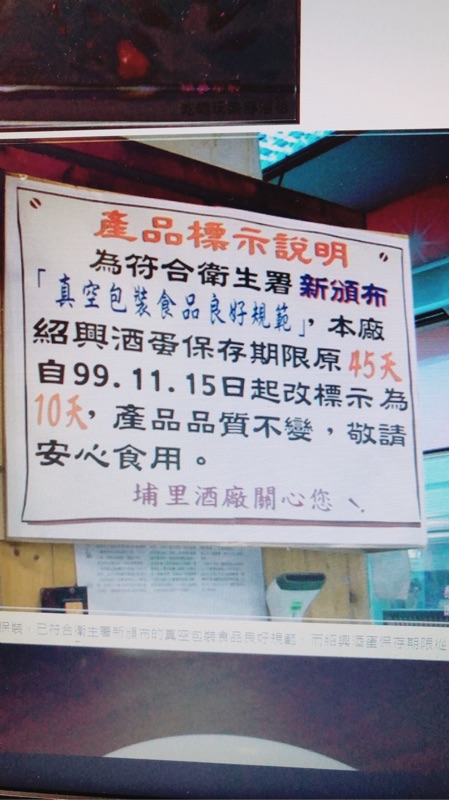 產品標示說明
為符合衛生署新頒布
「真空包裝食品良好規範」，本廠
紹興酒蛋保存期限原45天
自99.11.15日起改標示為
10天，產品品質不變，敬請
安心食用。
埔里酒廠關心您
已符合衛生署新頒布的真空包裝食品良好規範，而紹興酒蛋保存期限從